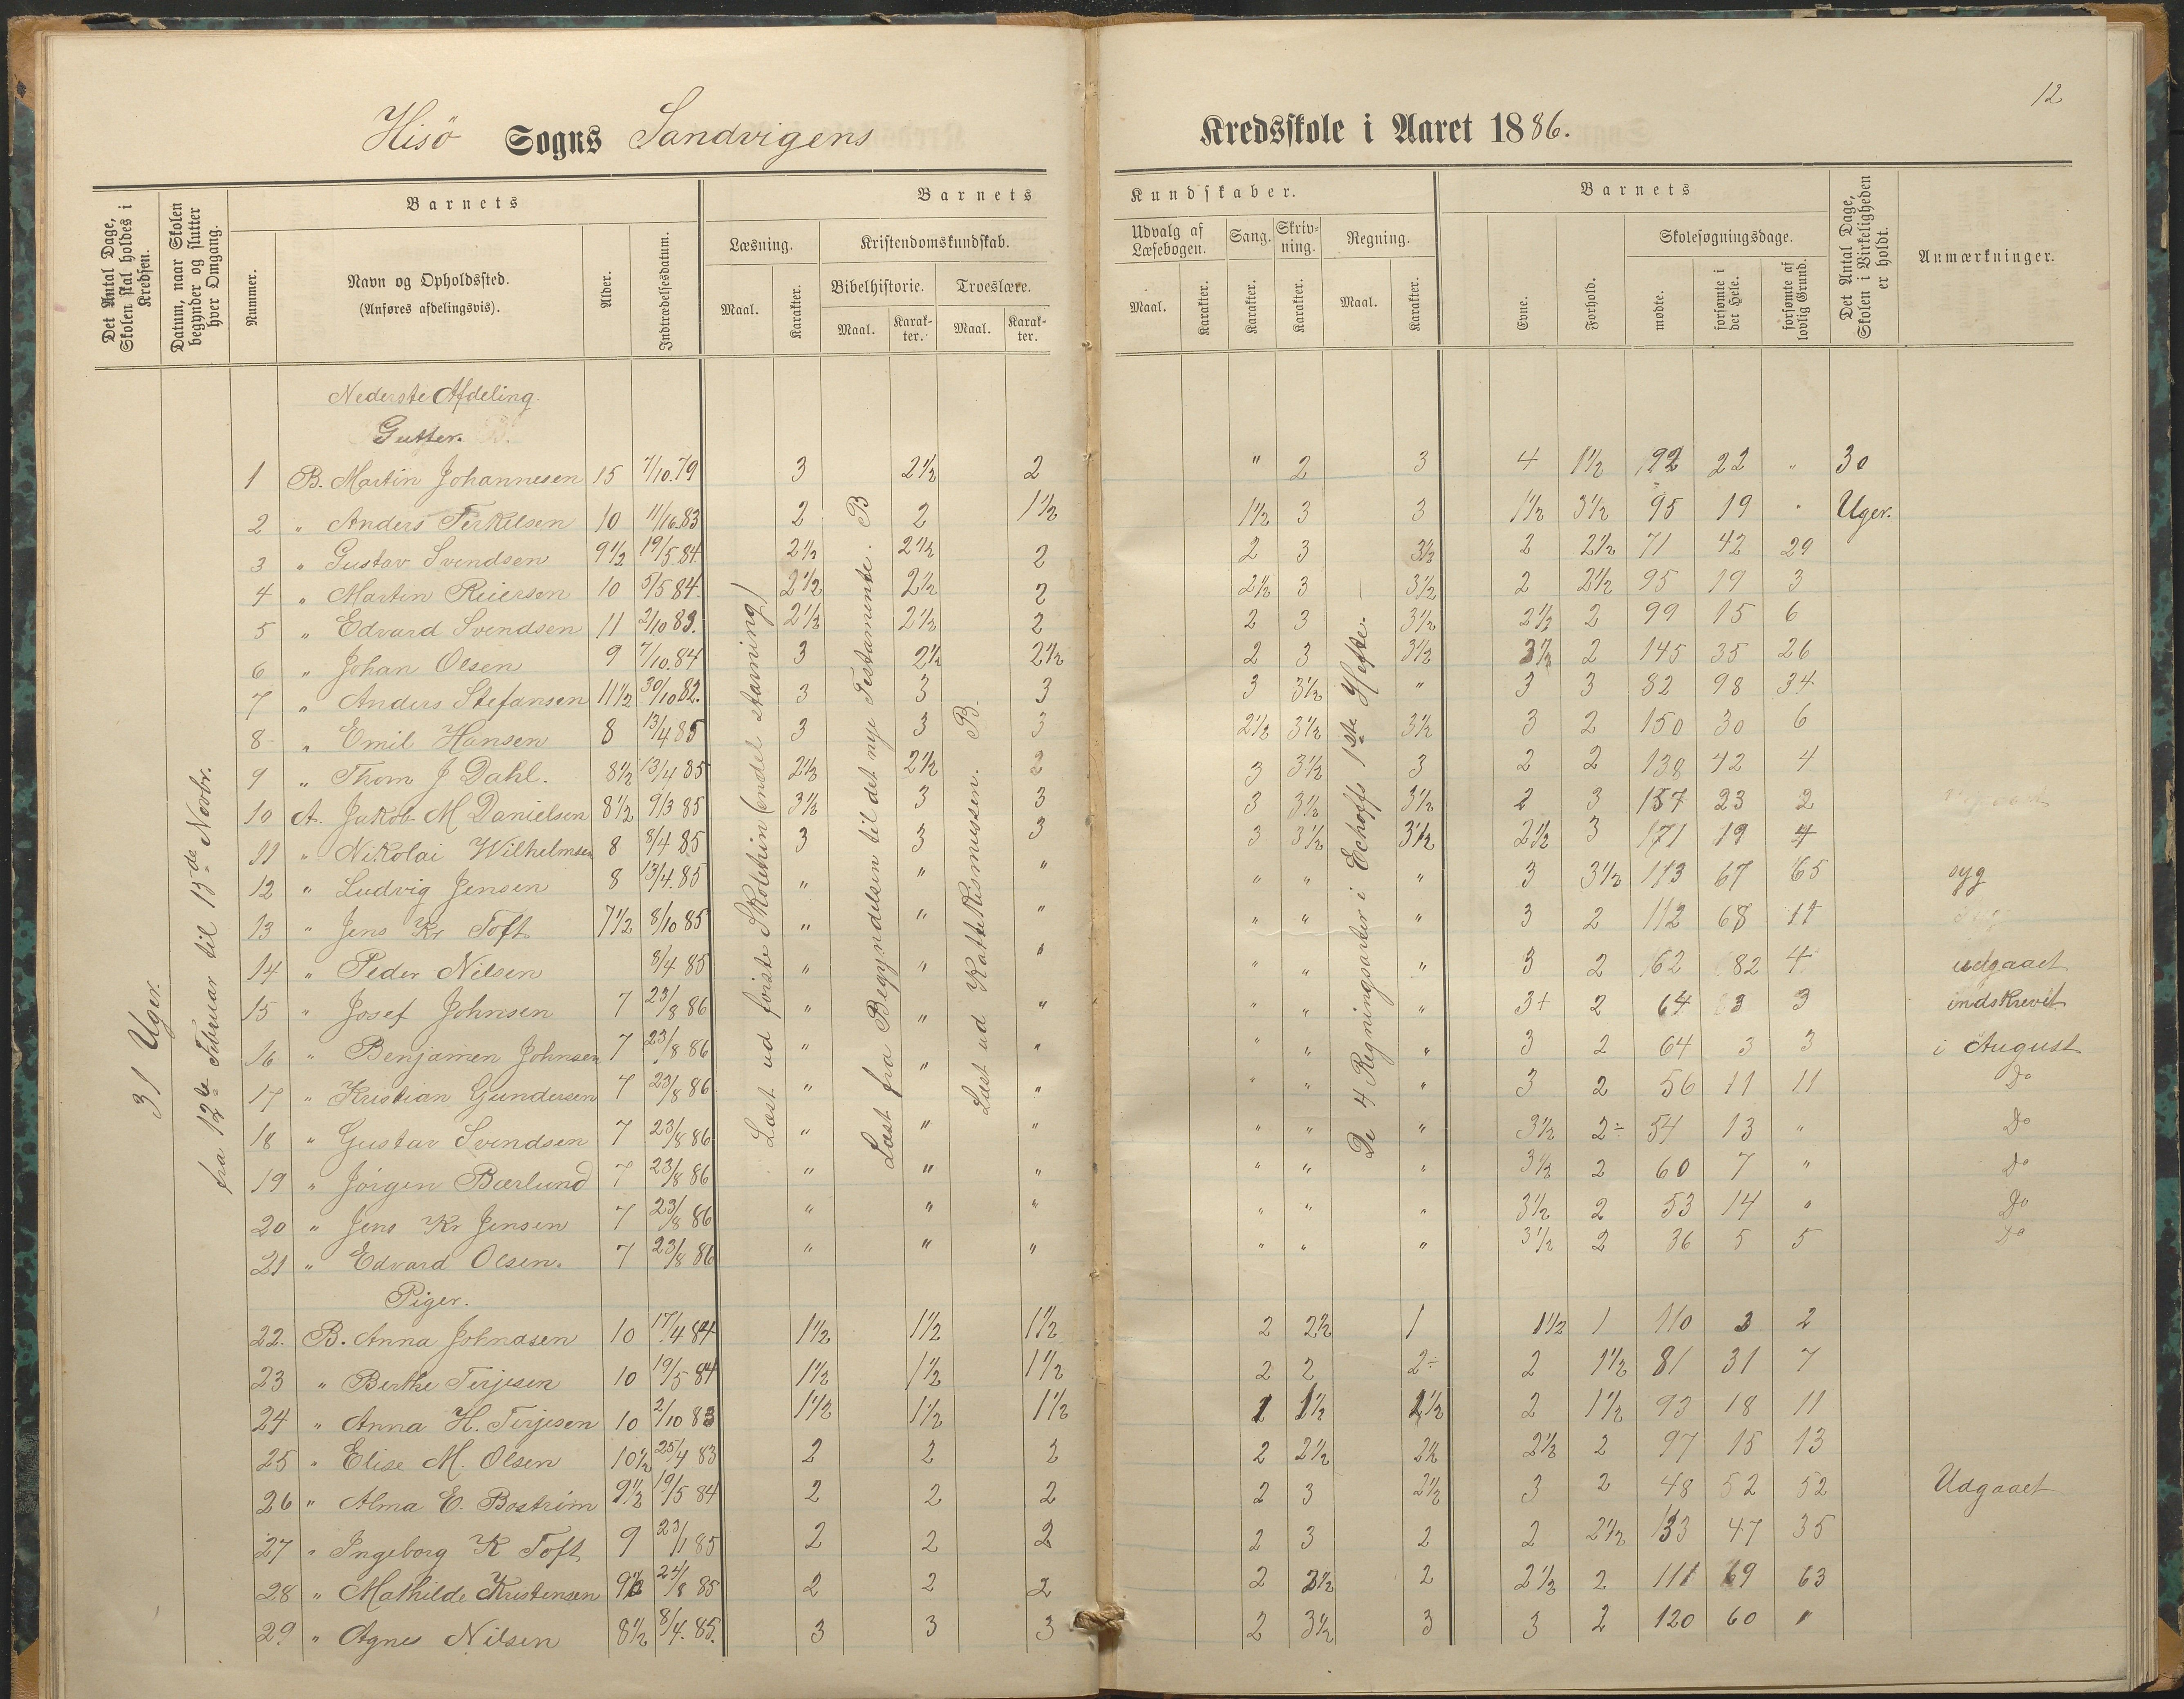 12
Hisö Sogns Sandvigens Kredsskole i Aaret 1886.
Det Antal Dage, Skolen skal holdes i Kredsen.
Datum, naar Skolen begynder og slutter hver Omgang.
Barnets
Nummer.
Navn og Opholdssted.
(Anføres afdelingsvis).
Alder.
Indtrædelsesdatum.
Barnets Kundskaber.
Læsning.
Maal.
Karakter.
Kristendomskundskab.
Bibelhistorie.
Maal.
Karakter.
Troeslære.
Maal.
Karakter.
Udvalg af Læsebogen.
Maal.
Karakter.
Sang.
Karakter.
Skrivning.
Karakter.
Regning.
Maal.
Karakter.
Barnets
Evne.
Forhold.
Skolesøgningsdage.
mødte.
forsømte i det Hele.
forsømte af lovlig Grund.
Det Antal Dage, Skolen i Virkeligheden er holdt.
Anmærkninger.
31 Uger.
fra 12te Februar til 15de Novbr.
Læst ud første Skoletrin (endel staving)
Læst fra Begyndelsen til det nye Testamente. B
Læst ud Kattekismusen. B.
De 4 Regningsarter i Echoffs 1ste Hefte.
Nederste Afdeling.
Gutter.
1 B. Martin Johannesen 15 7/10.79 3 2½ 2 " 2 3 4 1½ 92 22 " 30
2 " Anders Terkelsen 10 11/10.83 2 2 1½ 1½ 3 3 1½ 3½ 95 19 " Uger.
3 " Gustav Svendsen 9½ 19/5.84 2½ 2½ 2 2 3 3½ 2 2½ 71 42 29
4 " Martin Reiersen 10 5/5 84 2½ 2½ 2 2½ 3 3½ 2 2½ 95 19 3
5 " Edvard Svendsen 11 2/10 83. 2½ 2½ 2 2 3 3½ 2½ 2 99 15 6
6 " Johan Olsen 9 7/10.84 3 2½ 2½ 2 3 3½ 3½ 2 145 35 26
7 " Anders Stefansen 11½ 30/10 82. 3 3 3 3 3½ " 3 3 82 98 34
8 " Emil Hansen 8 13/4 85 3 3 3 2½ 3½ 3½ 3 2 150 30 6
9 " Thom J Dahl. 8½ 13/4 85 2½ 2½ 2 3 3½ 3 2 2 138 42 4
10 A. Jakob M Danielsen 8½ 9/3 85 3½ 3 3 3 3½ 3½ 2 3 157 23 2
11 " Nikolai Wilhelmsen 8 8/4 85 3 3 3 3 3½ 3½ 2½ 3 171 19 4
12 " Ludvig Jensen 8 13/4.85 " " " " " " 3 3½ 113 67 65 syg
13 " Jens Kr Toft 7½ 8/10 85 " " " " " " 3 2 112 68 11
14 " Peder Nilsen 8/4 85 " " " " " " 3 2 62 82 4 udgaaet
15 " Josef Johnsen 7 23/8 86 " " " " " " 3+ 2 64 3 3 indskrevet
16 " Benjamen Johnsen 7 23/8 86 " " " " " " 3 2 64 3 3 i August
17 " Kristian Gundersen 7 23/8 86 " " " " " " 3 2 56 11 11 Do
18 " Gustav Svendsen 7 23/8 86 " " " " " " 3½ 2÷ 54 13 " Do
19 " Jörgen Bærlund 7 23/8 86 " " " " " " 3½ 2 60 7 " Do
20 " Jens Kr Jensen 7 23/8 86 " " " " " " 3½ 2 53 14 " Do
21 " Edvard Olsen. 7 23/8 86 " " " " " " 3½ 2 36 5 5 Do
Piger.
22. B. Anna Johnasen 10 17/4 84 1½ 1½ 1½ 2 2½ 1 1½ 1 110 3 2
23 " Berthe Terjesen 10 19/5 84 1½ 1½ 1½ 2 2 2÷ 2 1½ 81 31 7
24 " Anna H. Terjesen 10 2/10 83 1½ 1½ 1½ 1 1½ 1½ 2 1½ 93 18 11
25 " Elise M. Olsen 10½ 25/4 83 2 2 2 2 2½ 2½ 2½ 2 97 15 13
26 " Alma E. Boström 9½ 19/5 84 2 2 2 2 3 2½ 3 2 48 52 52 Udgaaet
27 " Ingeborg K Toft 9 23/1 85 2 2 2 2 3 2 2 2½ 133 47 35
28 " Mathilde Kristensen 9½ 24/8 85 2 2 2 2 3½ 2 2½ 2 111 69 63
29 " Agnes Nilsen 8½ 8/4.85. 3 3 3 2 3½ 3 3 2 120 60 "